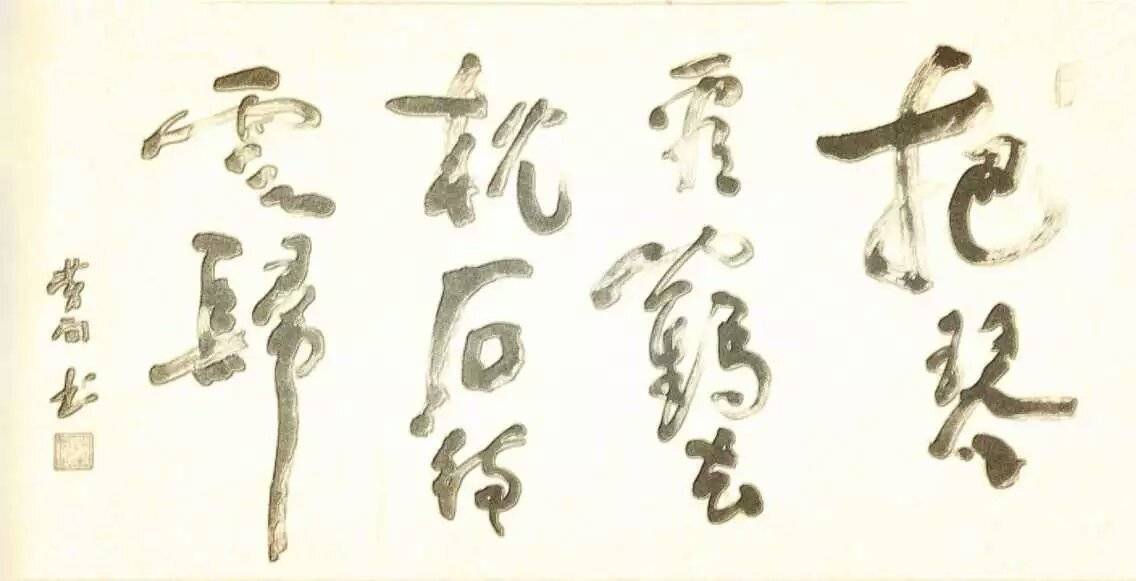 抱琴
看鶴去
枕石待
雲歸
书